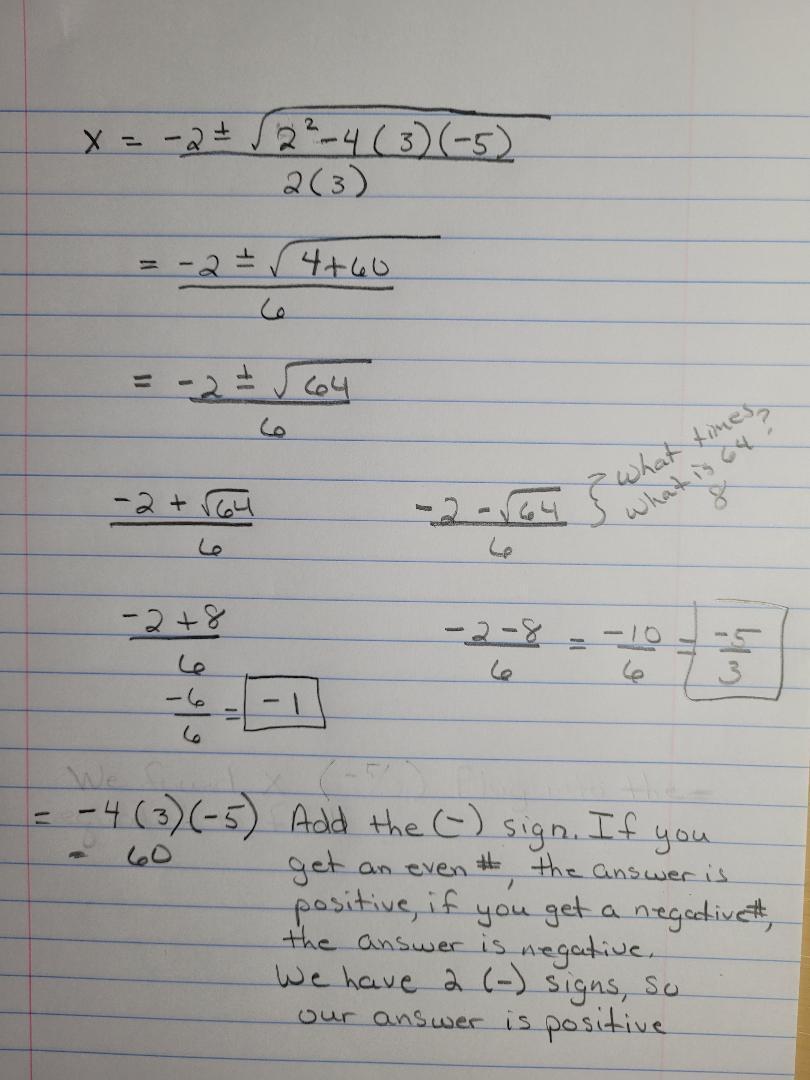 x = -2 ± √2² - 4(3)(-5)
2(3)
= -2 ± √4+60
6
= -2 ± √64
6
-2 + √64
6
-2 - √64 } what times
what is 64?
8
6
-2 + 8
6
-6/6 = -1
-2 - 8/6 = -10/6 = -5/3
We found x (-5/ ) Plug into the
= -4(3)(-5) Add the (-) sign. If you
= 60 get an even #, the answer is
positive, if you get a negative #,
the answer is negative.
We have 2 (-) signs, so
our answer is positive